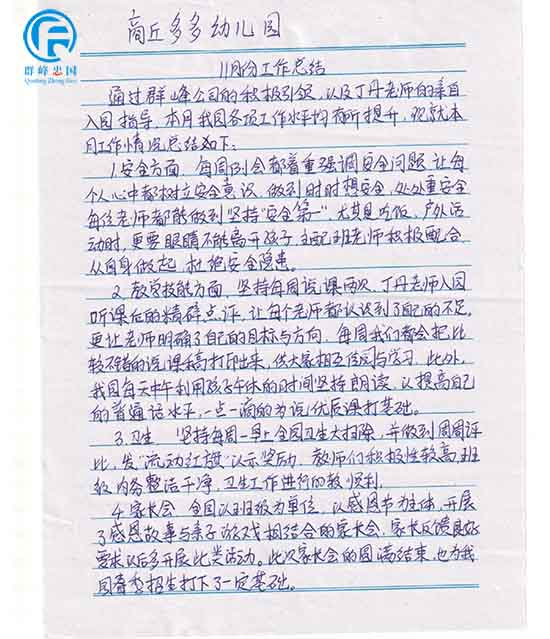 群峰忠国
Qunfeng Zhong Guo
商丘多多幼儿园
11月份工作总结
通过群峰公司的积极引领，以及丁丹老师的亲自
入园指导，本月我园各项工作水平均有所提升，现就本
月工作情况总结如下：
1.安全方面，每周例会都着重强调安全问题，让每
个人心中都树立安全意识，做到时时想安全，处处重安全
每位老师都能做到坚持“安全第一”，尤其是吃饭、户外活
动时，更要眼睛不能离开孩子，主配班老师积极配合
从自身做起，杜绝安全隐患。
2.教学技能方面，坚持每周说课两次，丁丹老师入园
听课后的精辟点评，让每个老师都认识到了自己的不足，
更让老师明确了自己的目标与方向，每周我们都会把比
较不错的说课稿打印出来，供大家相互传阅与学习，此外，
我园每天中午利用孩子午休的时间坚持朗读，以提高自己
的普通话水平，一点一滴的为说优质课打基础。
3.卫生 坚持每周一早上全园卫生大扫除，并做到周周评
比，发“流动红旗”以示奖励，教师们积极性较高，班
级内务整洁干净，卫生工作进行的较顺利。
4.家长会 全园以班级为单位，以感恩节为主体，开展
了感恩故事与亲子游戏相结合的家长会，家长反馈良好
要求以后多开展此类活动。此次家长会的圆满结束，也为我
园春季招生打下了一定基础。